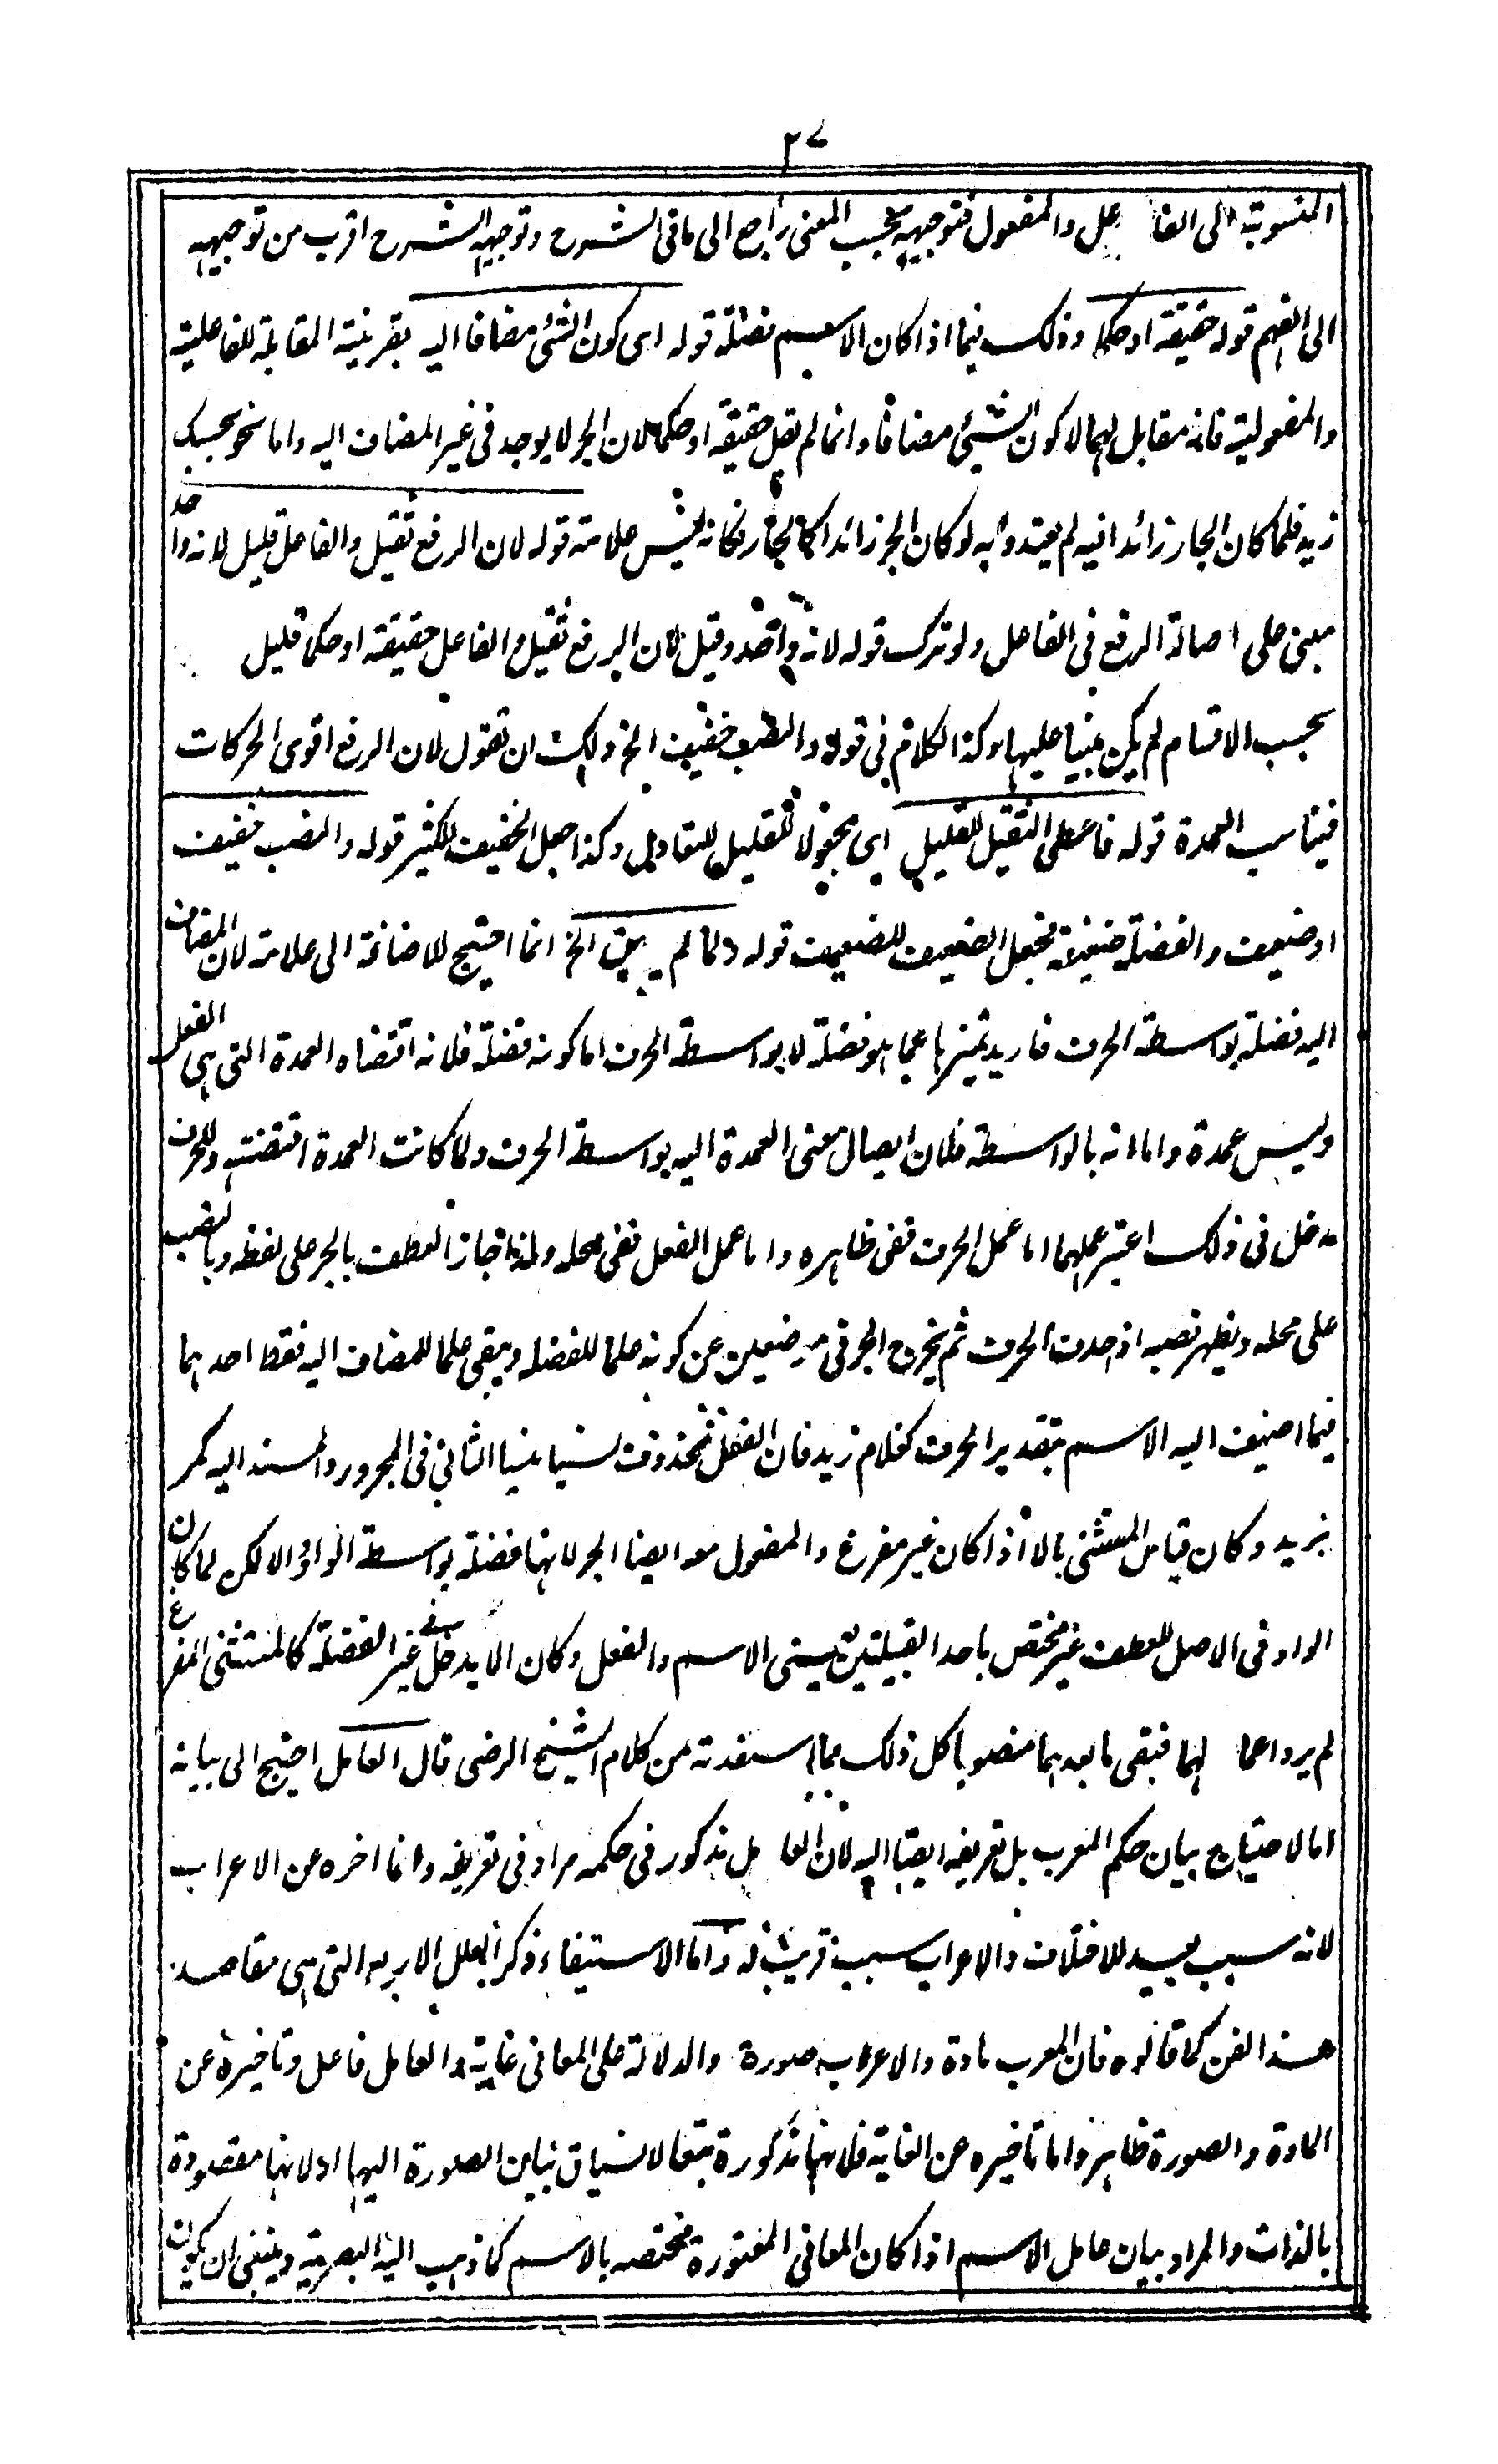 ٢٧
المنسوبة الى الفاعل والمفعول فتوجيهه بحسب المعنى راجع الى ما فى الشرح وتوجيه الشرح اقرب من توجيهه
الى الفهم قوله حقيقة او حكما وذلك فيما اذا كان الاسم فضلة قوله اى كون الشئ مضافا اليه بقرينة المقابلة للفاعلية
والمفعولية فانه مقابل لهما لا كون الشيئ مضافا وانما لم يقل حقيقة او حكما لان الجر لا يوجد فى غير المضاف اليه واما نحو بحسبك
زيد فلما كان الجار زائدا فيه لم يعتد وا به لو كان الجر زائدا كالجار فكانه ليس علامة قوله لان الرفع ثقيل والفاعل قليل لانه واحد
مبنى على اصالة الرفع فى الفاعل ولو ترك قوله لانه واحد وقيل لان الرفع ثقيل والفاعل حقيقة او حكما قليل
بحسب الاقسام لم يكن مبنيا عليها وكذا الكلام فى قوله والنصب خفيف الخ ولك ان تقول لان الرفع اقوى الحركات
فيناسب العمدة قوله فاعطى الثقيل للقليل اى مجعولا للقليل للتعادل وكذا جعل الخفيف للكثير قوله والنصب خفيف
او ضعيف والفضلة ضعيفة فجعل الضعيف للضعيف قوله ولما لم يبق الخ انما احتيج للاضافة الى علامة لان المضاف
اليه فضلة بواسطة الحرف فاريد تميزها عما هو فضلة لا بواسطة الحرف اما كونه فضلة فلانه اقتضاه العمدة التى هى الفعل
وليس عمدة واما انه بالواسطة فلان ايصال معنى العمدة اليه بواسطة الحرف ولما كانت العمدة اقتضته وللحرف
مدخل فى ذلك اعتبر عملهما اما عمل الحرف ففى ظاهره واما عمل الفعل ففى محله ولهذا جاز العطف بالجر على لفظه وبالنصب
على محله ويظهر نصبه اذ احذف الحرف ثم يخرج الجر فى موضعين عن كونه علما للفضلة ويبقى علما للمضاف اليه فقط احدهما
فيما اضيف اليه الاسم بتقدير الحرف كغلام زيد فان الفعل محذوف نسيا منسيا الثانى فى المجرور والمسند اليه كمر
بزيد وكان قياس المستثنى بالا اذا كان غير مفرغ والمفعول معه ايضا الجر لانها فضلة بواسطة الواو والا لكن لما كان
الواو فى الاصل للعطف غير مختص باحد القبيلتين يعنى الاسم والفعل وكان الا يدخل فى غير الفضلة كالمستثنى المفرغ
لم يرد اعمالهما فبقى ما بعدهما منصوبا كل ذلك مما استفدته من كلام الشيخ الرضى قال العامل احتيج الى بيانه
اما لاحتياج بيان حكم المعرب بل تعريفه ايضا اليه لان العامل مذكور فى حكمه مراد فى تعريفه وانما اخره عن الاعراب
لانه سبب بعيد للاختلاف والاعراب سبب قريب له واما الاستيفاء ذكر العلل الاربعة التى هى مقاصد
هذا الفن كما قالوه فان المعرب مادة والاعراب صورة والدلالة على المعانى غاية والعامل فاعل وتاخيره عن
المادة والصورة ظاهر واما تاخيره عن الغاية فلانها مذكورة تبعا لانسياق بيان الصورة اليها او لانها مقصودة
بالذات والمراد بيان عامل الاسم اذا كان المعانى المعتورة مختصه بالاسم كما ذهب اليه البصرية وينبغى ان يكون